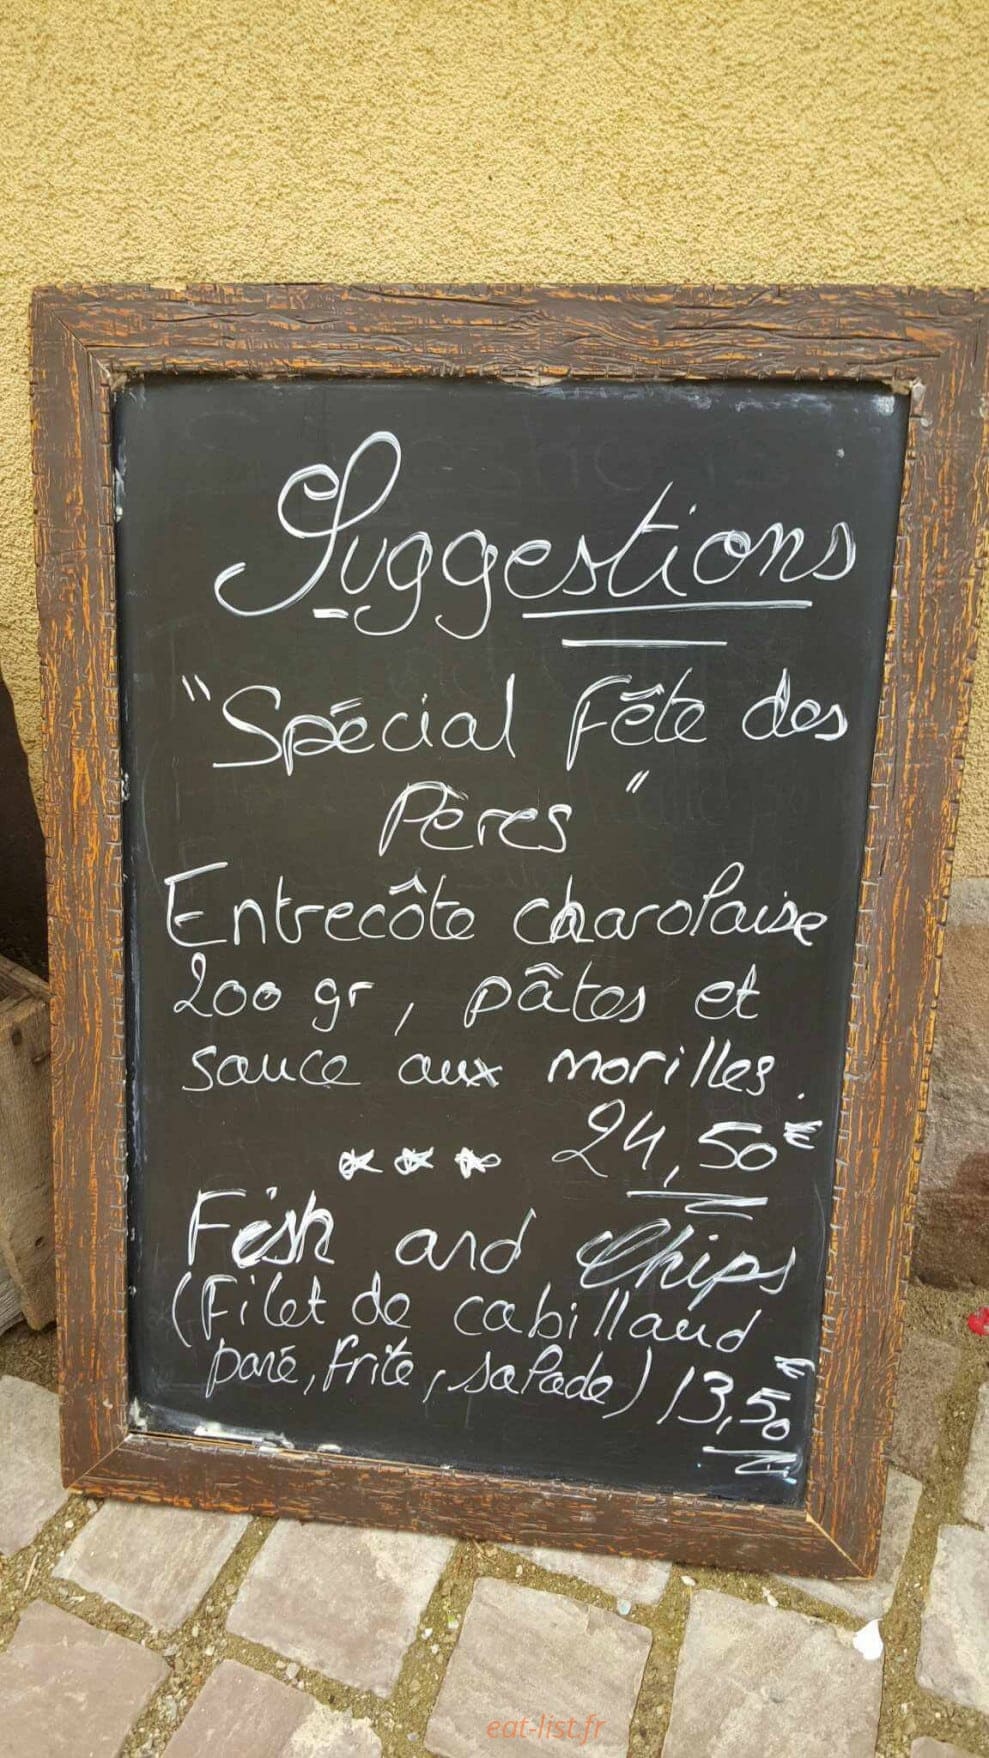 Suggestions
"Spécial Fête des
Pères"
Entrecôte charolaise
200 gr, pâtes et
sauce aux morilles.
*** 24,50€
Fish and Chips
(Filet de cabillaud
pané, frite, salade) 13,50€
eat-list.fr